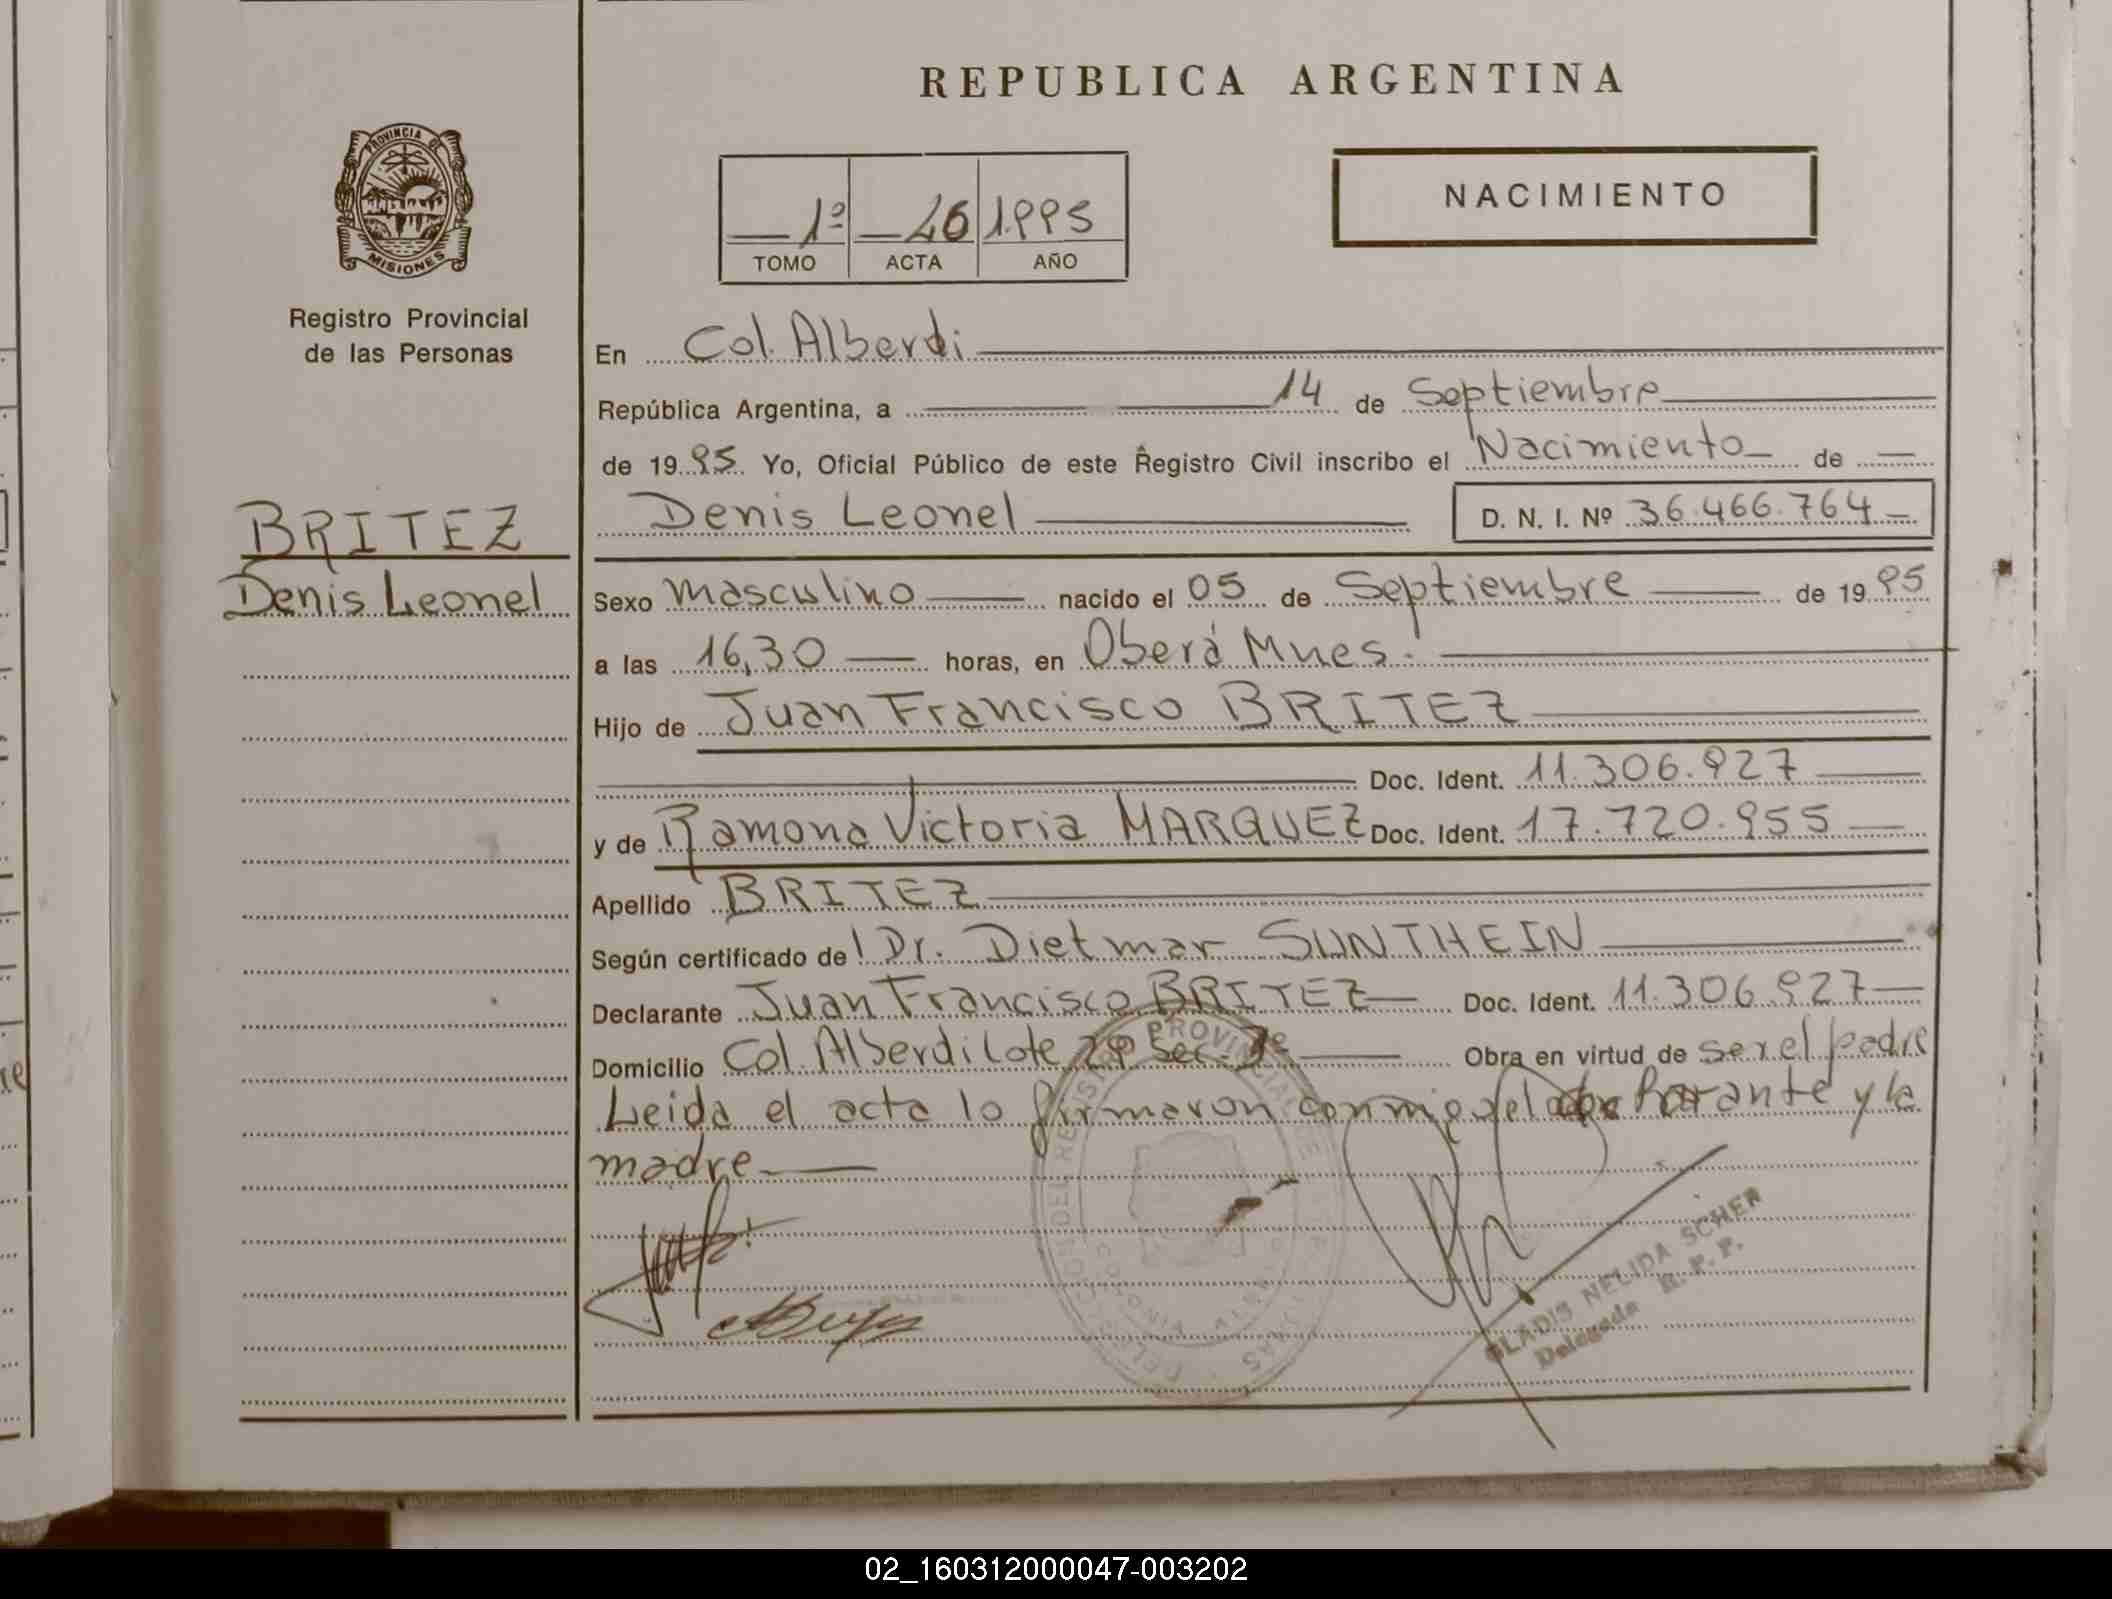 REPUBLICA ARGENTINA
PROVINCIA DE
MISIONES
Registro Provincial
de las Personas
1º 26 1.995
TOMO ACTA AÑO
NACIMIENTO
En Col. Alberdi
República Argentina, a 14 de Septiembre
de 1995 Yo, Oficial Público de este Registro Civil inscribo el Nacimiento de
Denis Leonel D. N. I. Nº 36.466.764
BRITEZ
Denis Leonel
Sexo masculino nacido el 05 de Septiembre de 1995
a las 16,30 horas, en Oberá Mnes.
Hijo de Juan Francisco BRITEZ
Doc. Ident. 11.306.927
y de Ramona Victoria MARQUEZ Doc. Ident. 17.720.955
Apellido BRITEZ
Según certificado del Dr. Dietmar SUNTHEIN
Declarante Juan Francisco BRITEZ Doc. Ident. 11.306.927
Domicilio Col. Alberdi Lote Sec. Obra en virtud de ser el padre
Leida el acta lo firmaron conmigo el y la
madre
GLADIS NELIDA SCHER
Delegada R. P. P.
02_160312000047-003202